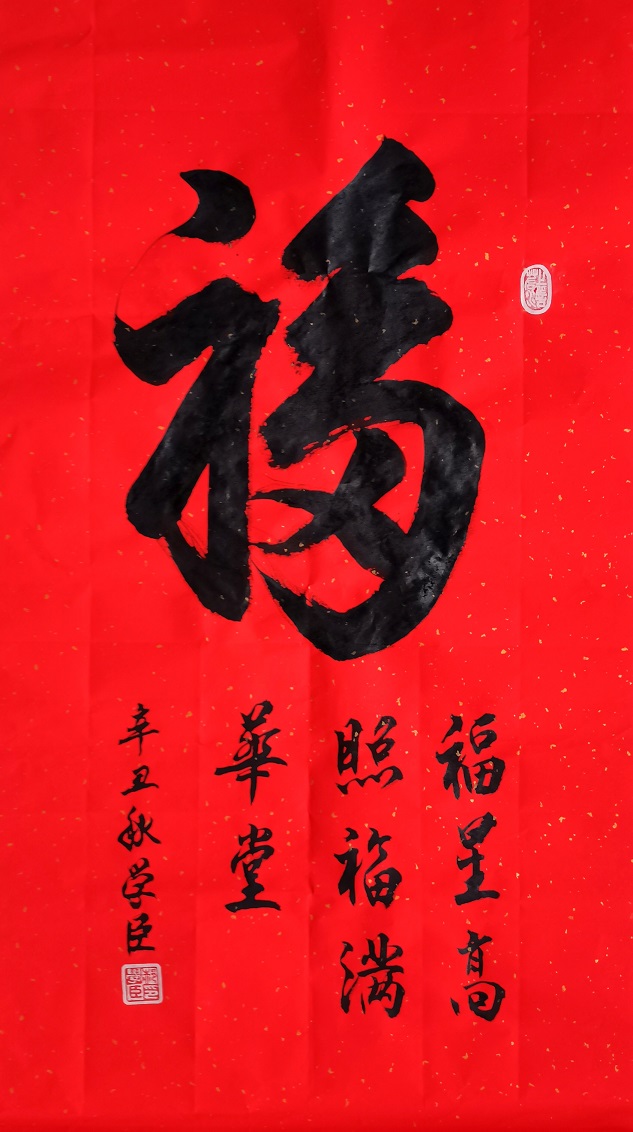 福
福星高
照福满
華堂
辛丑秋学臣